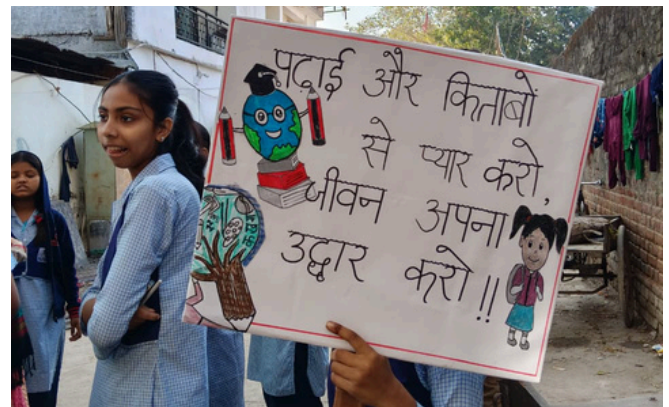 पढ़ाई और किताबों
से प्यार करो,
जीवन अपना
उद्धार करो!!